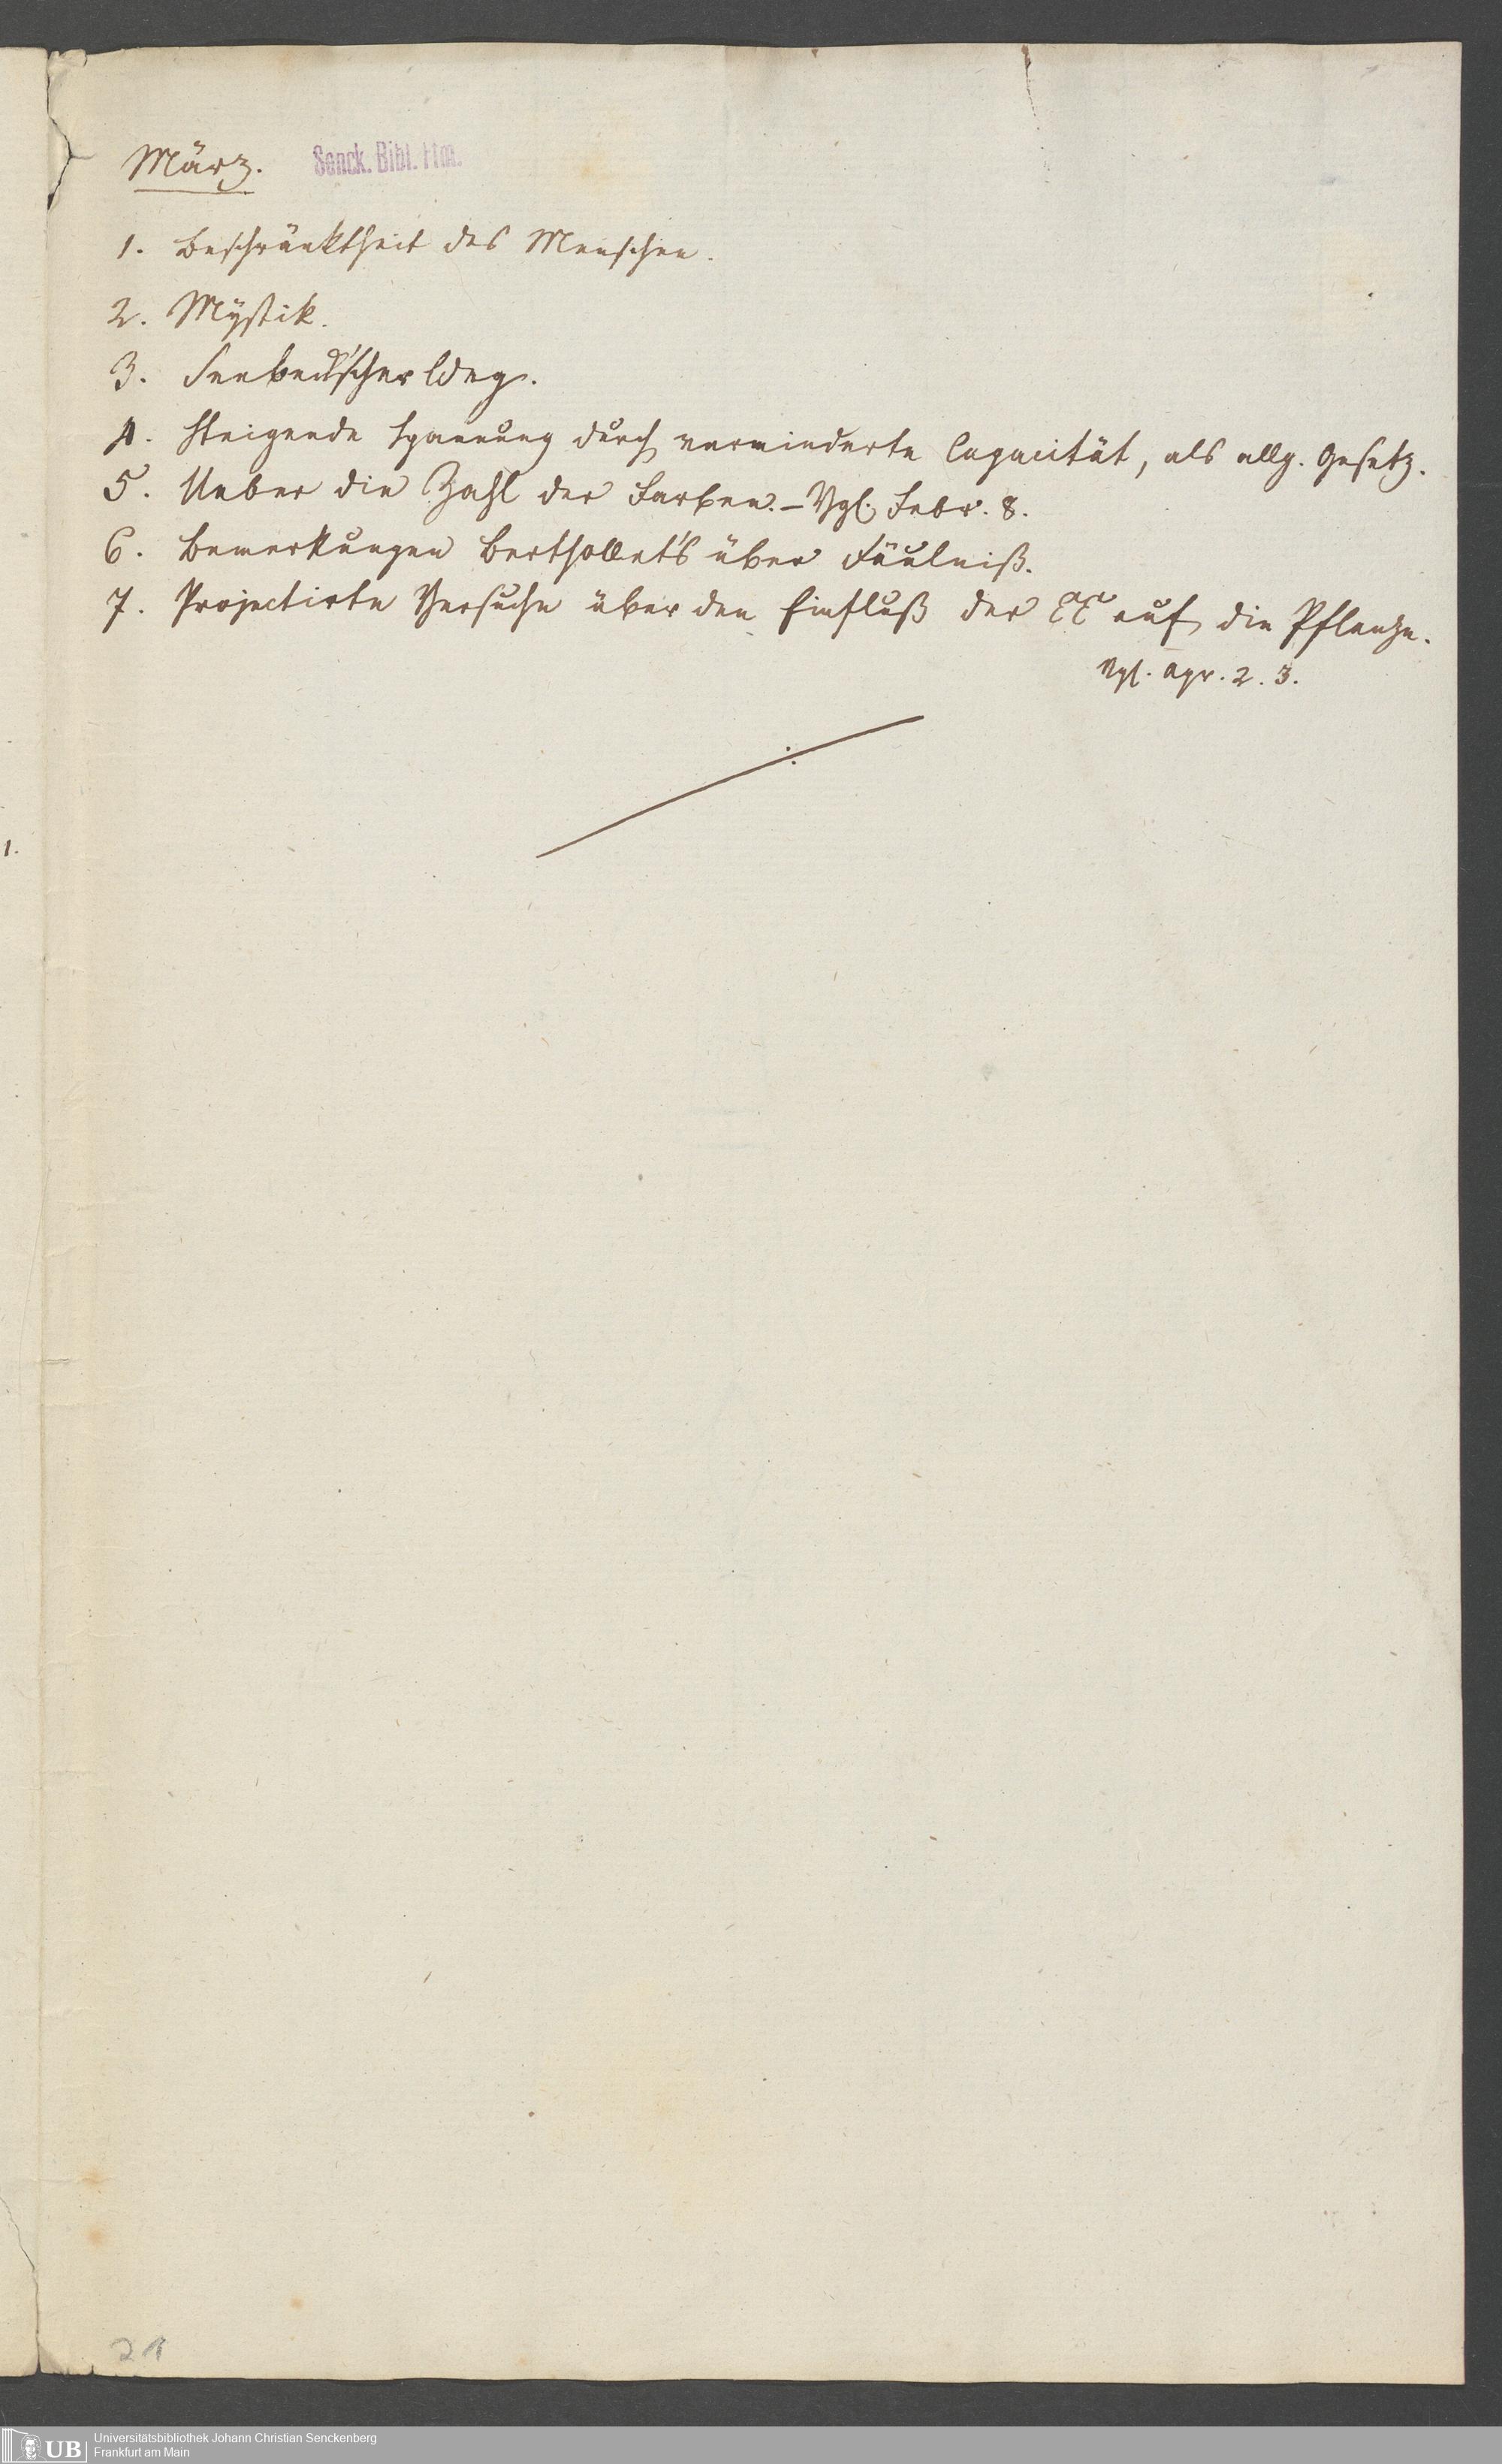 März.
Senck. Bibl. Ffm.
1. Beschränktheit des Menschen.
2. Mystik.
3. Seebeck'scher
4. Steigende Spannung durch verminderte Capacität, als allg. Gesetz.
5. Ueber die Zahl der Farben. – Vgl. Febr. 8.
6. Bemerkungen Berthollet's über Fäulniß.
7. Projectirte Versuche über den Einfluß der auf die Pflanze.
Vgl. Apr. 2. 3.
1.
21
UB
Universitätsbibliothek Johann Christian Senckenberg
Frankfurt am Main